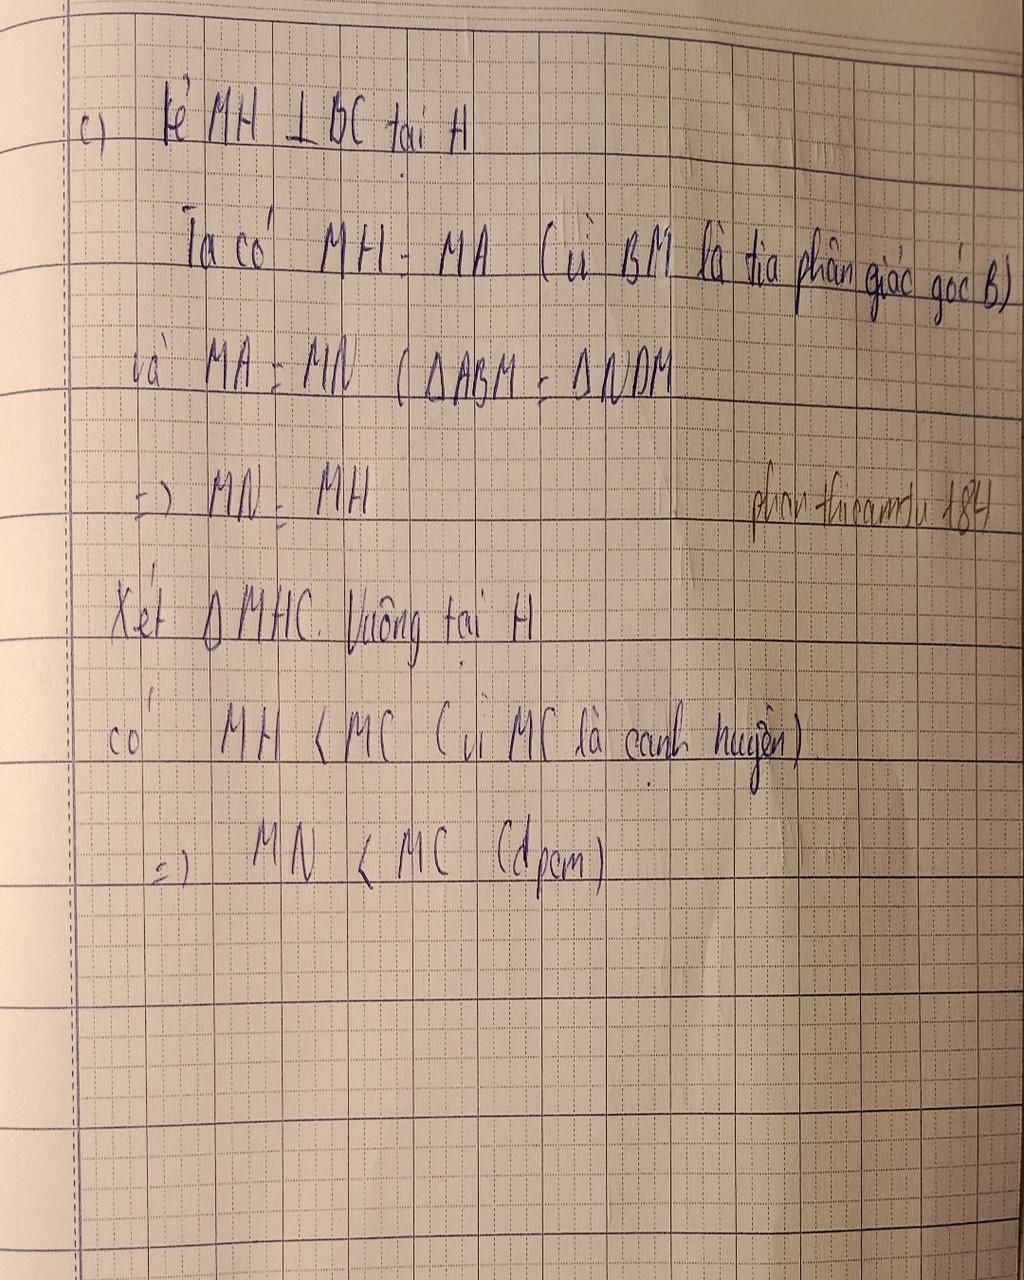 c) kẻ MH ⊥ BC tại H
Ta có MH = MA (vì BM là tia phân giác góc B)
và MA = MN (ΔABM = ΔNDM
=) MN = MH
184
Xét ΔMHC. Vuông tại H
có MH < MC (vì MC là cạnh huyền)
=) MN < MC (đpcm)